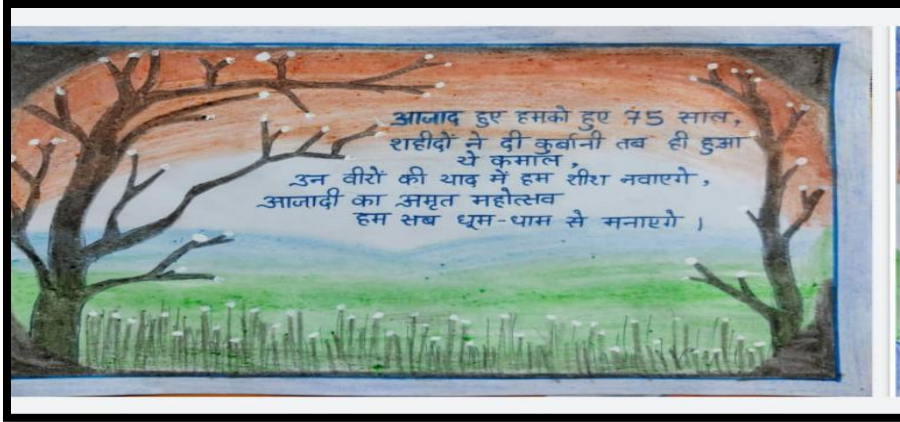 आजाद हुए हमको हुए 75 साल,
शहीदों ने दी कुर्बानी तब ही हुआ
ये कमाल,
उन वीरों की याद में हम शीश नवाएगे,
आजादी का अमृत महोत्सव
हम सब धूम-धाम से मनाएगे ।